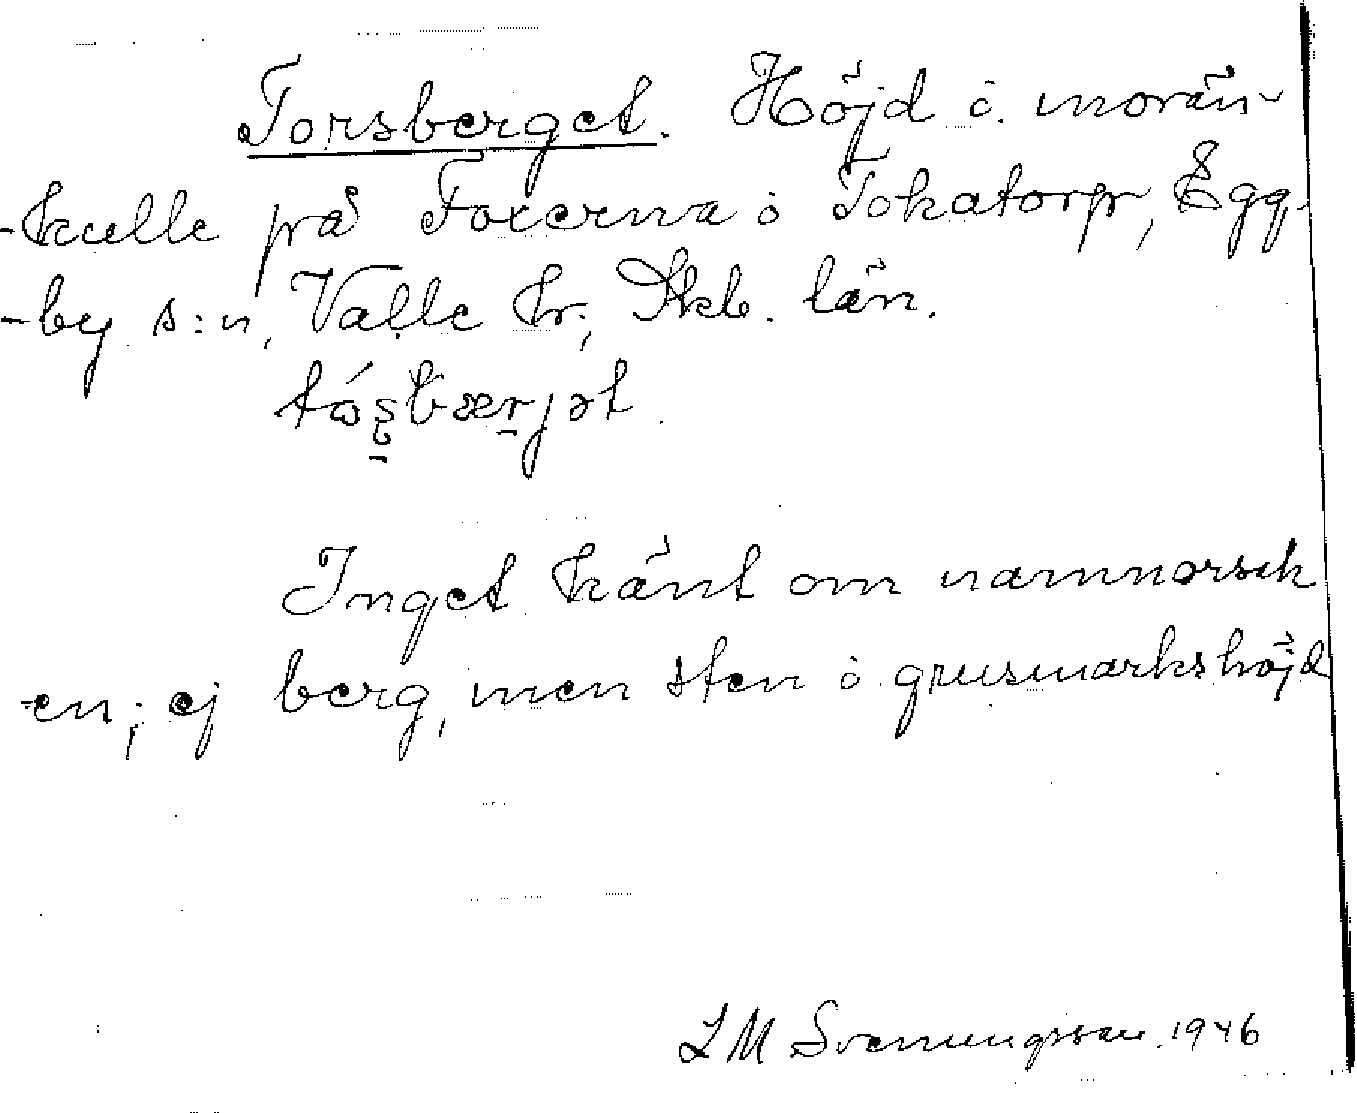 Torsberget. Höjd i morän-
-kulle på Foxerna i Tokatorp, Egg-
-by s:n, Valle hr, Skb. län.
Inget känt om namnorsak
-en; ej berg, men sten i grusmarkshöjd
LM Svenungsson 1946